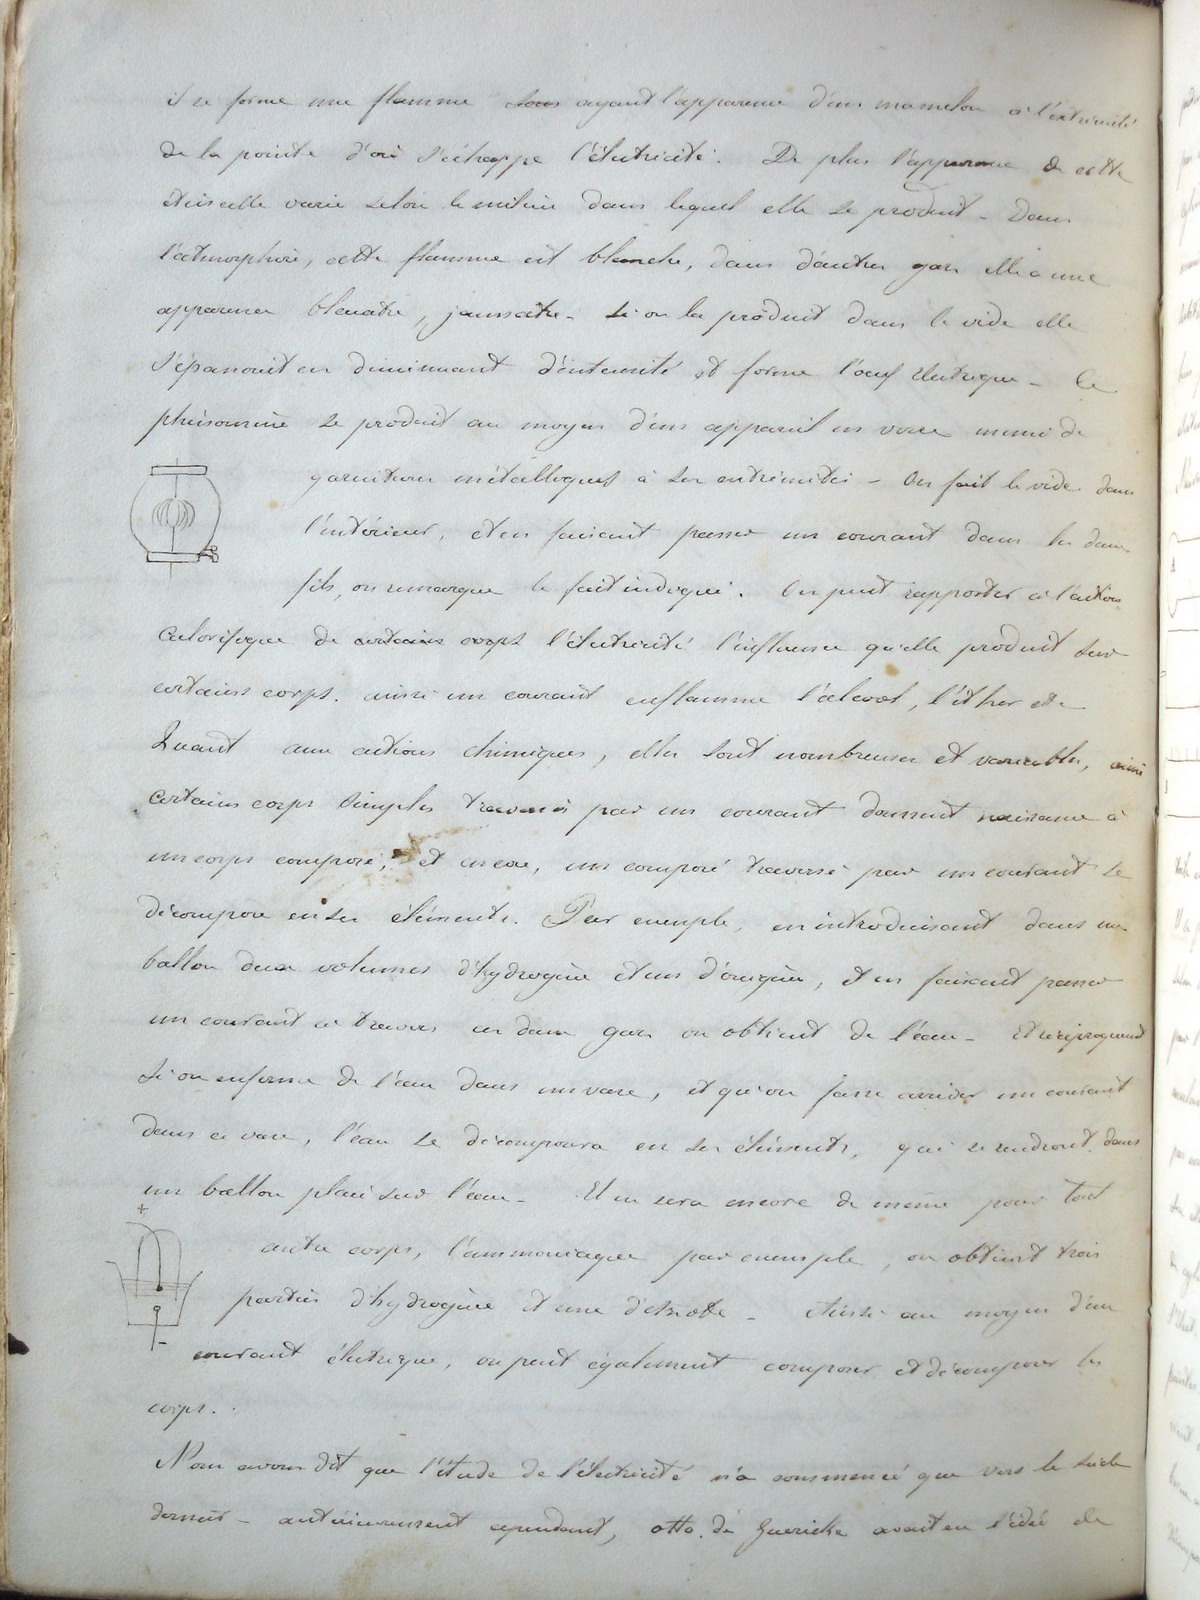 il se forme une flamme sous ayant l'apparence d'un mamelon à l'extrémité
de la pointe d'où s'échappe l'électricité. De plus l'apparence de cette
étincelle varie selon le milieu dans lequel elle se produit - Dans
l'atmosphère, cette flamme est blanche, dans d'autres gaz elle a une
apparence bleuatre, jaunatre - si on la produit dans le vide elle
s'épanouit en diminuant d'intensité et forme l'oeuf électrique - Ce
phénomène se produit au moyen d'un appareil en verre muni de
garnitures métalliques à ses extrémités - On fait le vide dans
l'intérieur, et en faisant passer un courant dans les deux
fils, on remarque le fait indiqué. On peut rapporter à l'action
calorifique de certains corps l'électricité l'influence qu'elle produit sur
certains corps. ainsi un courant enflamme l'alcool, l'éther etc
Quant aux actions chimiques, elles sont nombreuses et variables, ainsi
certains corps simples traversés par un courant donnent naissance à
un corps composé, et encore, un composé traversé par un courant se
décompose en ses éléments. Par exemple, en introduisant dans un
ballon deux volumes d'hydrogène et un d'oxigène, et en faisant passer
un courant à travers ces deux gaz on obtient de l'eau - Et réciproquement
si on enferme de l'eau dans un vase, et qu'on fasse arriver un courant
dans ce vase, l'eau se décomposera en ses éléments, qui se rendront dans
un ballon placé sur l'eau - Il en sera encore de même pour tout
+
autre corps, l'ammoniaque par exemple, on obtient trois
parties d'hydrogène et une d'azote - Ainsi au moyen d'un
-
courant électrique, on peut également composer et décomposer les
corps.
Nous avons dit que l'étude de l'électricité n'a commencé que vers le siècle
dernier - antérieurement cependant, otto de Guericke avait eu l'idée de